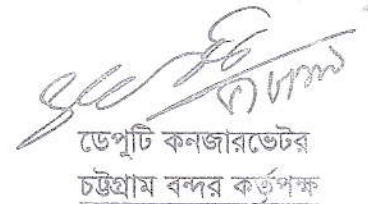 ডেপুটি কনজারভেটর
চট্টগ্রাম বন্দর কর্তৃপক্ষ